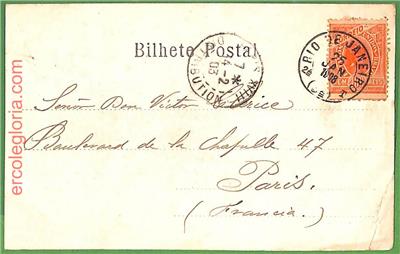 Bilhete Postal
RIO DE JANEIRO
25
JAN
1903
7 *
4-2
03
DISTRIBUTION
Señor Don Victor
Boulevard de la Chapelle 47
Paris.
(Francia.)
ercolegloria.com